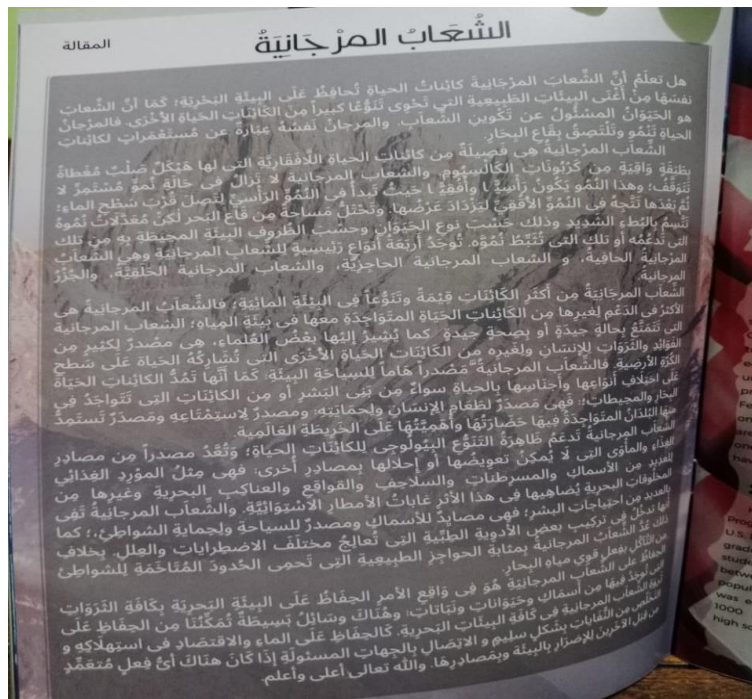 المقالة
الشُّعَابُ المرْجَانِيَةُ
هل تعلَمُ أنَّ الشِّعابَ المرْجَانِيةَ كائِناتُ الحياةِ تُحافِظُ عَلَى البِيئَةِ البَحْرِيَةِ؛ كَمَا أنَّ الشِّعابَ
نفسَهَا مِنْ أغْنَى البيئَاتِ الطَبِيعِيةِ التي تَحْوى تَنَوُّعًا كبيراً مِنَ الكَائِنَاتِ الحَياةِ الأخْرَى. فالمرْجانُ
هو الحَيَوَانُ المسْئُولُ عن تَكْوينِ الشِّعابَ. والمَرجانُ نَفسُهُ عِبَارَةٌ عن مُستَعْمَرَاتٍ لكائِناتِ
الحياةِ تَنْمُو وتَلْتَصِقُ بِقَاعِ البِحَارِ.
الشِّعابُ المرجَانيةُ هِى فَصِيلَةٌ مِن كائِنَاتِ الحياةِ اللَّافَقَارِيَّةِ التى لها هَيْكَلٌ صَلْبٌ مُغطاةٌ
بِطَبَقَةٍ وَاقِيَةٍ مِن كَرْبُونَاتِ الكَالْسِيُومِ. والشِّعابُ المرجانيةُ لا تَزالُ فى حَالَةِ نُموٍّ مُسْتَمِرٍّ لا
تَتَوَقَّفُ؛ وهذا النُمُو يَكُونُ رَأسِيًّا وأُفُقِيًّا حَيثُ تَبدأ فى النُّمُوِّ الرَأسِى لِتَصِلَ قُرْبَ سَطْحِ الماءِ؛
ثُمَّ بَعْدَهَا تَتَّجِهُ فى النُمُوِّ الأفُقِىِّ لِيَزْدَادَ عَرْضُها. وتَحْتَلُّ مَسَاحَةً مِن قَاعِ البَحر لَكنَّ مُعَدَّلاتِ نُمُوِهَا
تَتَّسِمُ بالبُطءِ الشَدِيدِ وذلك حَسْبَ نوعِ الحَيَوَانِ وحَسْبَ الظُروفِ البيئةِ المحيطَةِ بهِ مِن تلك
التى تَدعَمُه أو تلكَ التى تُثَبِّطُ نُمُوَّه. تُوجَدُ أربَعَةُ أنواعٍ رَئِيسِيةٍ للشعابِ المرجانيةِ وهى الشعابُ
المرجانية الحافِيةُ، و الشعاب المرجانية الحاجزِيَّةِ، والشعاب المرجانية الحَلقيَّةُ، والجُزُرُ
المرجانيةُ.
الشعابُ المرجَانيَةُ مِن أكثَرِ الكَائِنَاتِ قِيْمَةً وتَنَوُّعَاً فى البِيئَةِ المائِيَةِ؛ فالشِّعابُ المرجانيةُ هى
الأكثرُ فى الدَعْمِ لِغيرِها مِن الكَائِنَاتِ الحَيَاةِ المتَوَاجِدَةِ معها فى بِيئَةِ المِياهِ؛ الشعاب المرجانية
التى تَتَمَتَّعُ بِحالةٍ جيدَةٍ أو بِصحةٍ جيدةٍ. كما يُشِيرُ إليْها بعْضُ العُلَماءِ، هِى مصْدَرٌ لِكثيرٍ مِن
الفَوَائِدِ والثَرَوَاتِ للإنسَانِ ولِغيره مِن الكَائِنَاتِ الحَياةِ الأخْرَى التى تُشَارِكُهُ الحَياةَ عَلَى سَطْحِ
الكُرَةِ الأرضِيةِ. فالشِّعابُ المرجانيةُ مَصْدراً هَاماً للسيَاحَةِ البيئَةِ. كَمَا أنَّها تَمُدُّ الكائِنَاتِ الحَيَاةَ
عَلَى اختِلافِ أنوَاعِها وأجْنَاسِها بالحياةِ سواءٌ مِن بَنِى البَشرِ أو مِن الكائِنَاتِ التى تَتَواجَدُ فى
البِحَارِ والمحِيطَاتِ؛؛ فَهِىَ مَصْدَرٌ لطَعَامِ الإنسَانِ ولِحِمَايَتِهِ؛ ومصدرٌ لاسْتِمْتَاعِهِ ومصدَرٌ تَستَمِدُّ
مِنهَا البُلدَانُ المتَواجِدَةُ فِيهَا حَضَارَتَهَا وأهَمِيَّتَهَا عَلَى الخَرِيطَةِ العَالَمِيةِ.
الشعابُ المرجانيةُ تَدعَمُ ظَاهِرَةَ التَنَوُّعِ البيُولُوجِى للكَائِنَاتِ الحَياةِ؛ وَتُعَدُّ مصدراً مِن مصادِرِ
الغِذَاءِ والمأوَى التى لا يُمكنُ تَعويضُها أو إحلالُها بِمصادِرِ أخرى: فهى مِثلُ المَوْرِدِ الغِذائِي
للعديدِ مِن الأسماكِ والسرطناتِ والسلاحِفِ والقواقعِ والعناكبِ البحريةِ وغيرِها مِن
المخلُوقاتِ البحريةِ يُضاهِيها فى هذا الأثرِ غاباتُ الأمطارِ الاسْتِوَائِيَّةِ. والشِّعابُ المرجانيةُ تَفِى
بالعديدِ مِن احتِياجاتِ البشرِ؛ فهى مصايِدٌ للأسماكِ ومصدرٌ للسياحةِ ولِحمايةِ الشواطِئِ،؛ كما
أنَّها تدخُلُ فى تركيبِ بعضِ الأدويةِ الطبيَّةِ التى تُعالِجُ مختلَفَ الاضطراباتِ والعِللِ. بِخلافِ
ذلك عَدُّ الشعابِ المرجانيةِ بمثابةِ الحواجِزِ الطبيعيةِ التى تَحمِى الحُدودَ المُتَاخَمَةِ لِلشواطِئِ
مِن التآكُلِ بِفعلِ قوى مياهِ البحارِ.
الحفاظُ على الشعابِ المرجانيَةِ هُوَ فِى وَاقِعِ الأمرِ الحِفَاظُ عَلَى البِيئَةِ البَحرِيَةِ بِكَافَةِ الثَرَوَاتِ
التى تُوجَدُ فِيهَا مِن أسمَاكٍ وحَيَوَانَاتٍ ونَبَاتَاتٍ؛ وهُنَاكَ وسَائِلُ بَسِيطَةٌ تُمَكِّنُنَا مِن الحِفَاظِ عَلَى
الشعابِ المرجانيةِ فى كَافَّةِ البيئَاتِ البَحريةِ. كَالحِفَاظِ عَلَى الماءِ والاقتِصَادِ فى استِهلاكِهِ و
التخلُّصِ مِن النُفَاياتِ بِشَكلٍ سليمٍ و الاتِصَالِ بالجِهاتِ المسئولَةِ إذَا كَانَ هناكَ أىُّ فِعلٍ مُتعَمَّدٍ
مِن قِبَلِ الآخَرِينَ للإضرَارِ بالبيئَةِ وبِمَصَادِرِهَا. والله تعالى أعلى وأعلم.